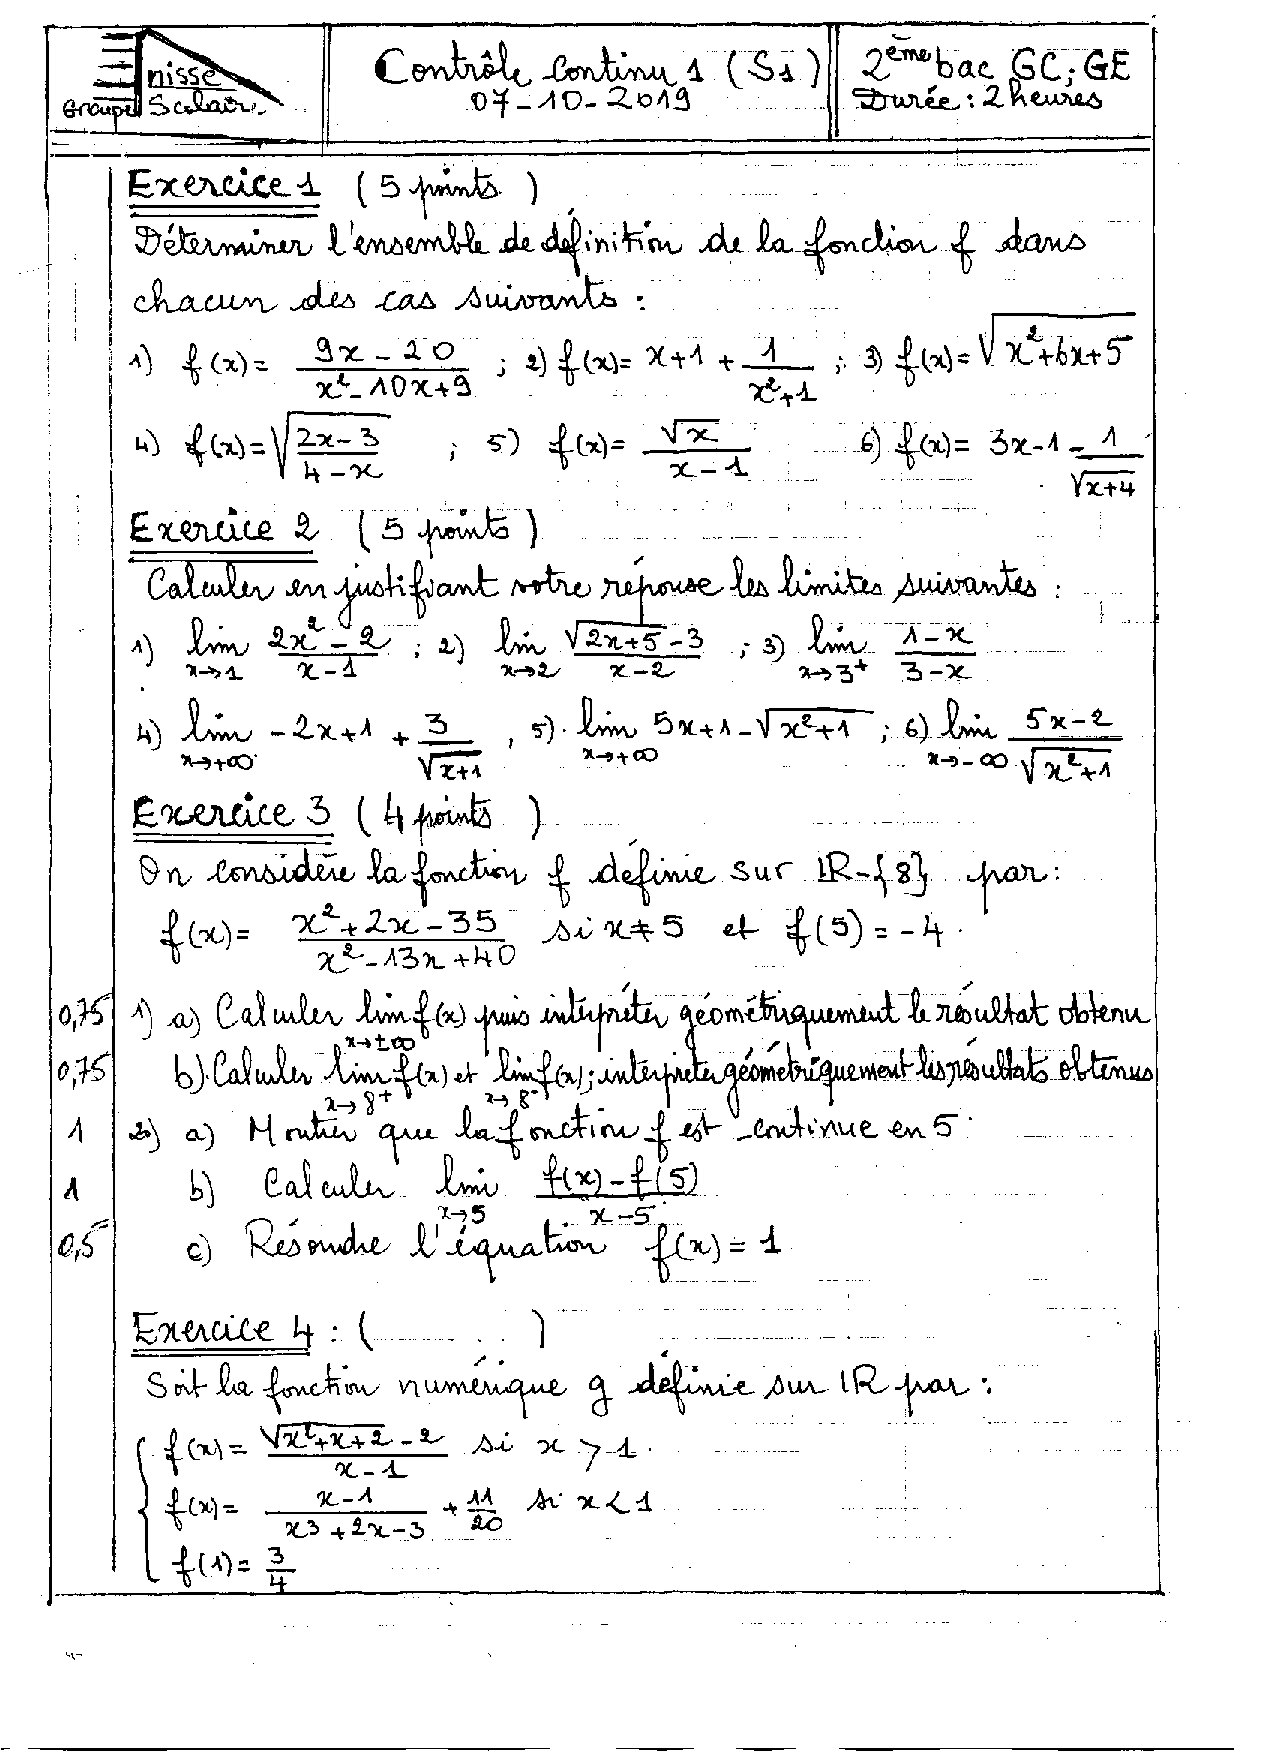 nisse
Groupe Scolaire
Contrôle Continu 1 (S1)
07-10-2019
2ème bac GC; GE
Durée : 2 heures
Exercice 1 (5 points)
Déterminer l'ensemble de définition de la fonction f dans
chacun des cas suivants :
1) f(x)= (9x-20)/(x²-10x+9) ; 2) f(x)= x+1 + 1/(x²+1) ; 3) f(x)= √(x²+6x+5)
4) f(x)= √((2x-3)/(4-x)) ; 5) f(x)= √x/(x-1) 6) f(x)= 3x-1 - 1/√(x+4)
Exercice 2 (5 points)
Calculer en justifiant votre réponse les limites suivantes :
1) lim x→1 (2x²-2)/(x-1) ; 2) lim x→2 (√(2x+5)-3)/(x-2) ; 3) lim x→3⁺ (1-x)/(3-x)
4) lim x→+∞ -2x+1 + 3/√(x+1) , 5) lim x→+∞ 5x+1-√(x²+1) ; 6) lim x→-∞ (5x-2)/√(x²+1)
Exercice 3 (4 points)
On considère la fonction f définie sur IR-{8} par :
f(x)= (x²+2x-35)/(x²-13x+40) si x≠5 et f(5)=-4.
0,75 1) a) Calculer lim x→±∞ f(x) puis intérpréter géométriquement le résultat obtenu
0,75 b) Calculer lim x→8⁺ f(x) et lim x→8⁻ f(x); interpréter géométriquement les résultats obtenus
1 2) a) Montrer que la fonction f est continue en 5.
1 b) Calculer lim x→5 (f(x)-f(5))/(x-5)
0,5 c) Résoudre l'équation f(x)=1
Exercice 4 : ( )
Soit la fonction numérique g définie sur IR par :
f(x)= (√(x²+x+2)-2)/(x-1) si x > 1.
f(x)= (x-1)/(x3+2x-3) + 11/20 si x < 1
f(1)= 3/4